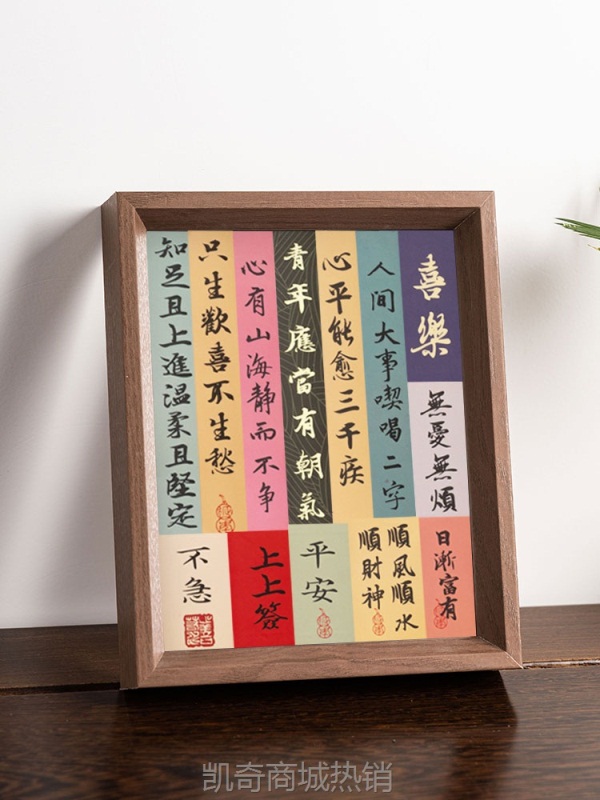 喜樂
無憂無煩
人间大事喫喝二字
心平能愈三千疾
青年應當有朝氣
心有山海静而不争
只生歡喜不生愁
知足且上進温柔且堅定
日漸富有
順風順水
順財神
平安
上上簽
不急
凯奇商城热销